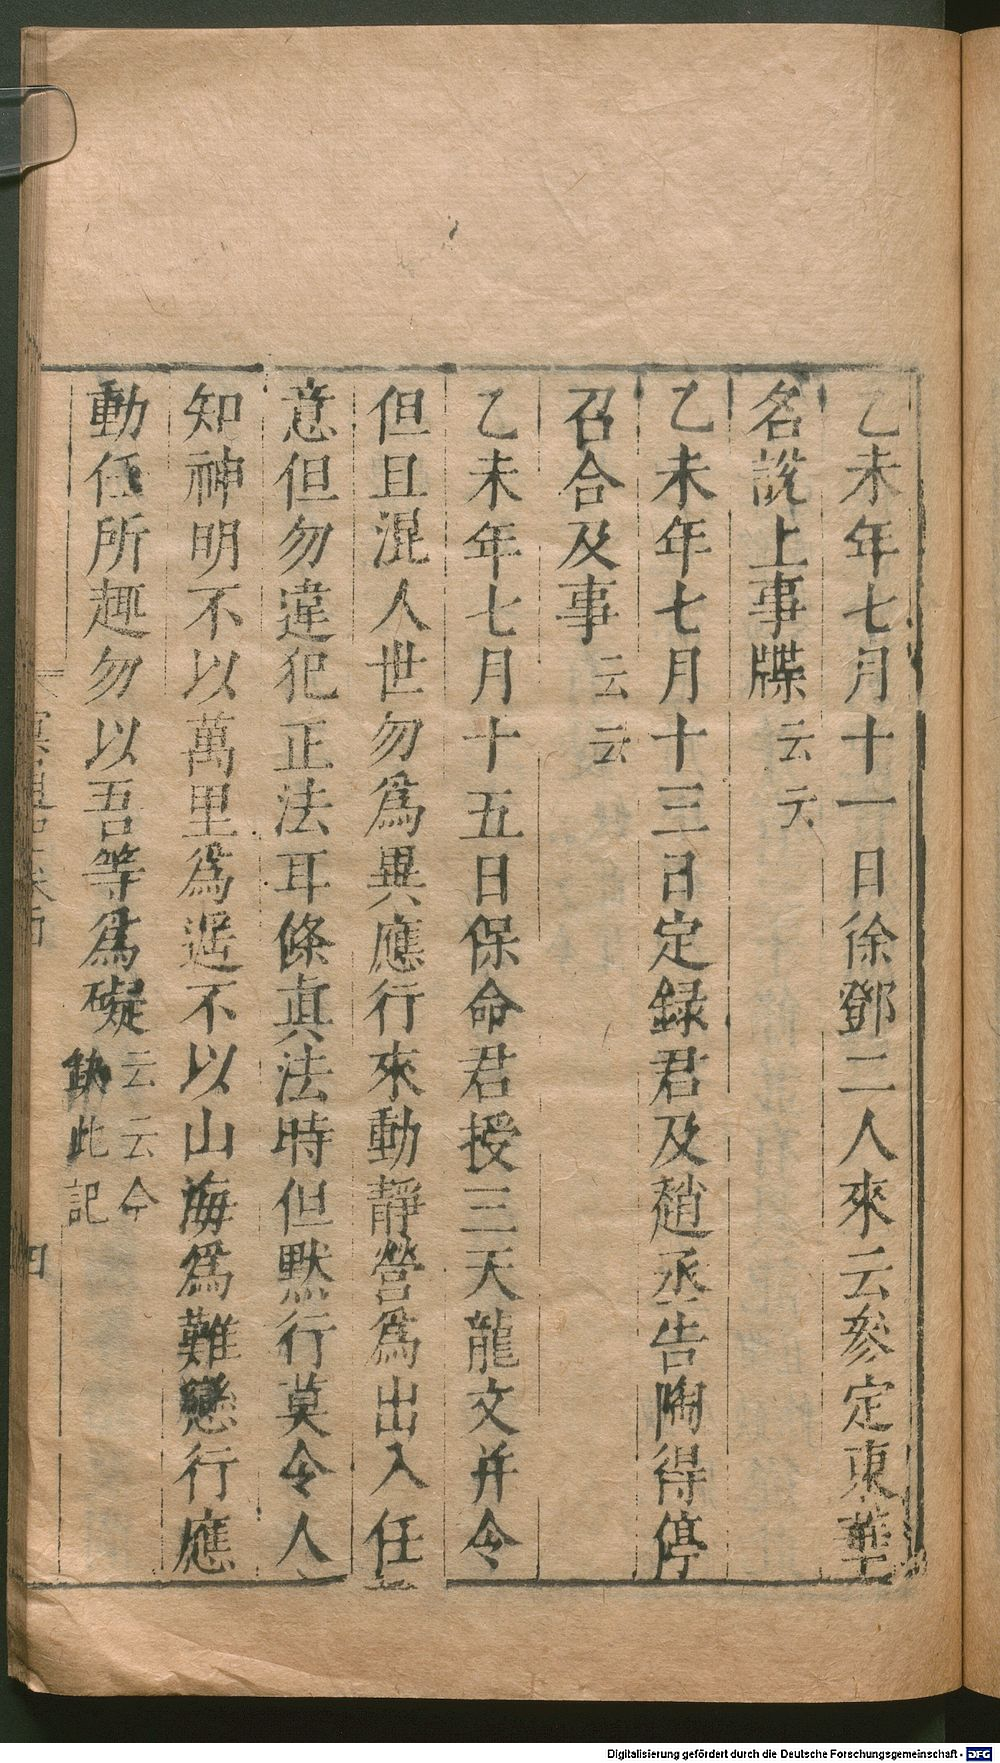 乙未年七月十一日徐鄧二人來云參定東華
名說上事牒云云
乙未年七月十三日定錄君及趙丞告陶得停
召合及事云云
乙未年七月十五日保命君授三天龍文并令
但且混人世勿爲異應行來動靜營爲出入任
意但勿違犯正法耳條眞法時但默行莫令人
知神明不以萬里爲遐不以山海爲難戀行應
動任所趣勿以吾等爲礙云云今
缺此記
四
Digitalisierung gefördert durch die Deutsche Forschungsgemeinschaft - DFG